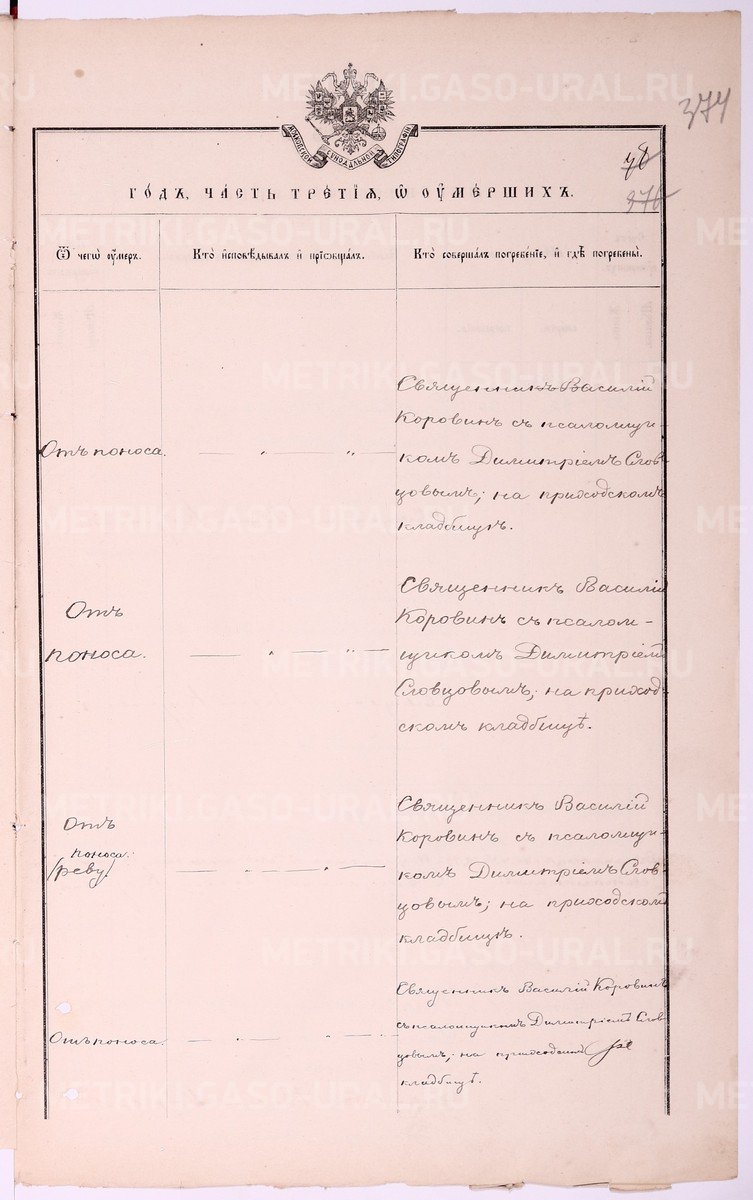 374
МОСКОВСКОЙ СѴНОДАЛЬНОЙ ТИПОГРАФІИ
376
ГО́ДЪ, ЧА́СТЬ ТРЕ́ТІЯ, Ѡ҆ ОУ҆МЕ́РШИХЪ.
Ѿ чегѡ̀ оу҆́меръ.
Кто̀ и҆сповѣ́дывалъ и҆ прїѡбща́лъ.
Кто̀ соверша́лъ погребе́нїе, и҆ гдѣ̀ погребены̀.
Отъ поноса.
Священникъ Василій
Коровинъ съ псаломщи-
комъ Димитріемъ Слов-
цовымъ; на приходскомъ
кладбищѣ.
Отъ
поноса.
Священникъ Василій
Коровинъ съ псалом-
щикомъ Димитріемъ
Словцовымъ; на приход-
скомъ кладбищѣ.
Отъ
поноса.
/реву/
Священникъ Василій
Коровинъ съ псаломщи-
комъ Димитріемъ Слов-
цовымъ; на приходском
кладбищѣ.
Отъ поноса.
Священникъ Василій Коровинъ
съ псаломщикомъ Димитріемъ Слов-
цовымъ; на приходскомъ
кладбищѣ.
METRIKI.GASO-URAL.RU